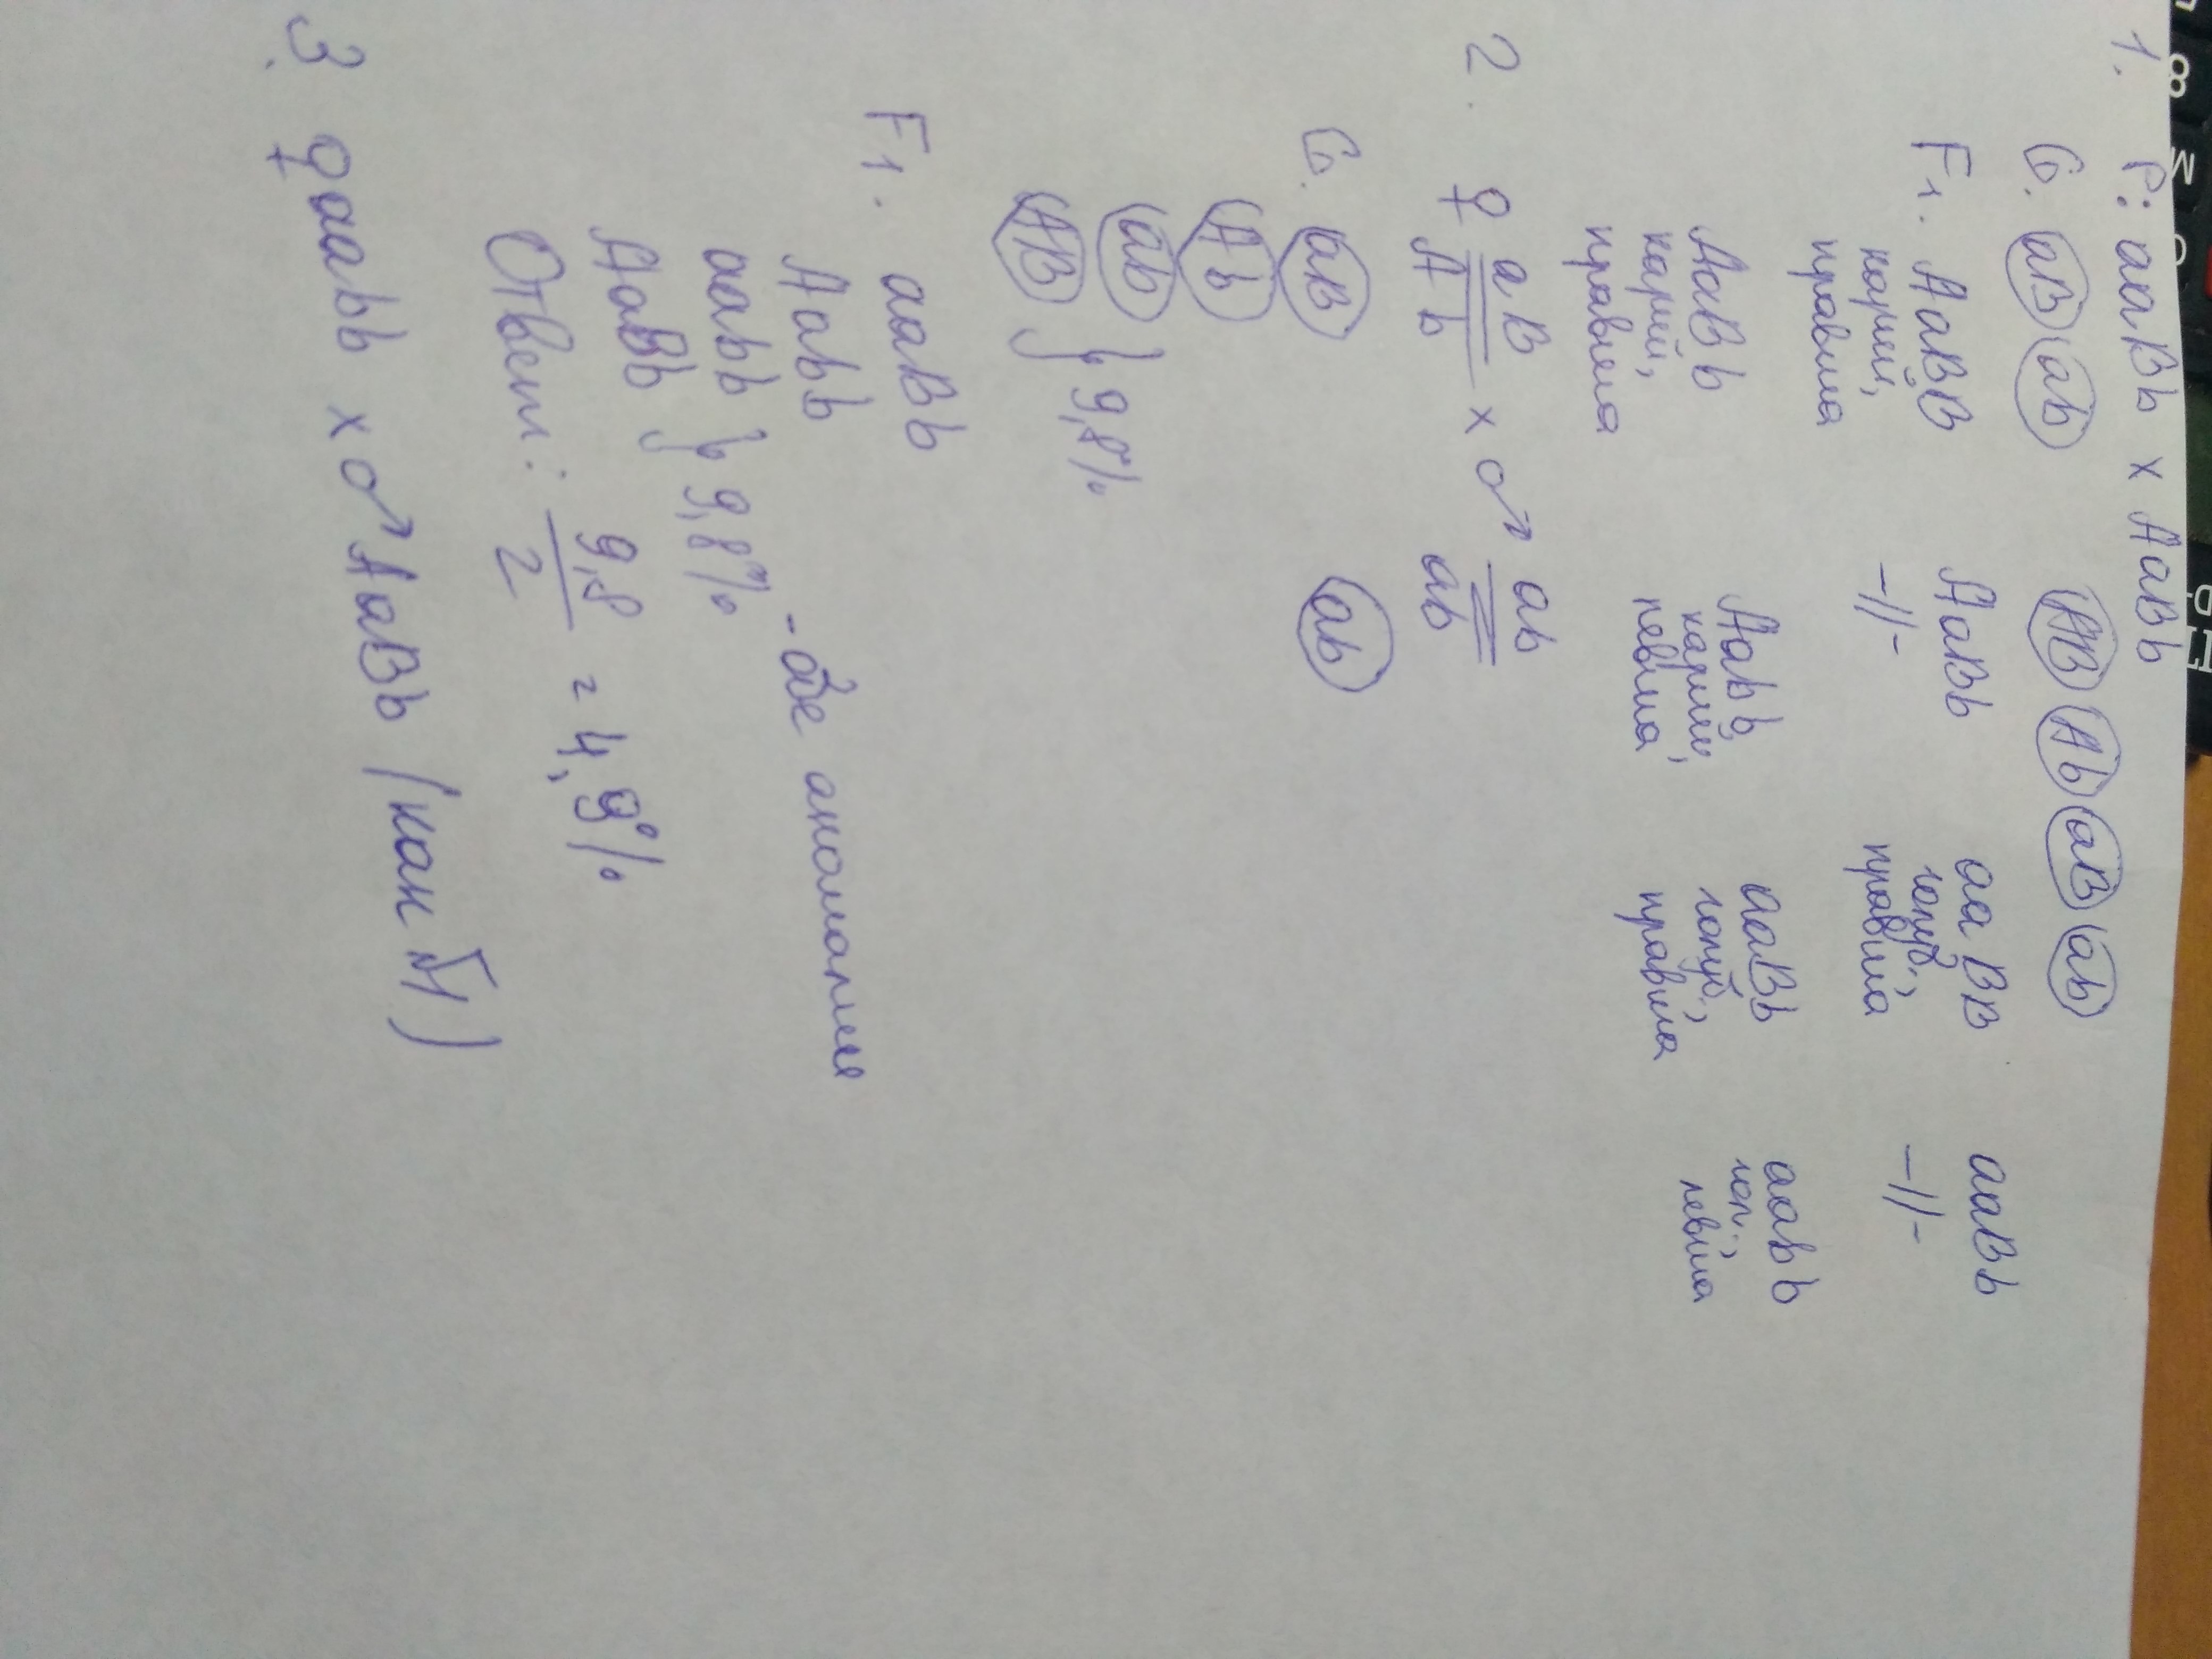 1. P: aaBb x AaBb
G. aB ab AB Ab aB ab
F1. AaBB AaBb aaBB aaBb
карий, правша -//- голуб., правша -//-
AaBb Aabb aaBb aabb
карий, правша карий, левша голуб., правша гол., левша
2. ♀ aB x ♂ ab
Ab ab
G. aB ab
Ab
ab
AB } 9,8%
F1. aaBb
Aabb - обе аномалии
aabb
AaBb } 9,8%
Ответ: 9,8/2 = 4,9%
3. ♀ aabb x ♂ AaBb (как